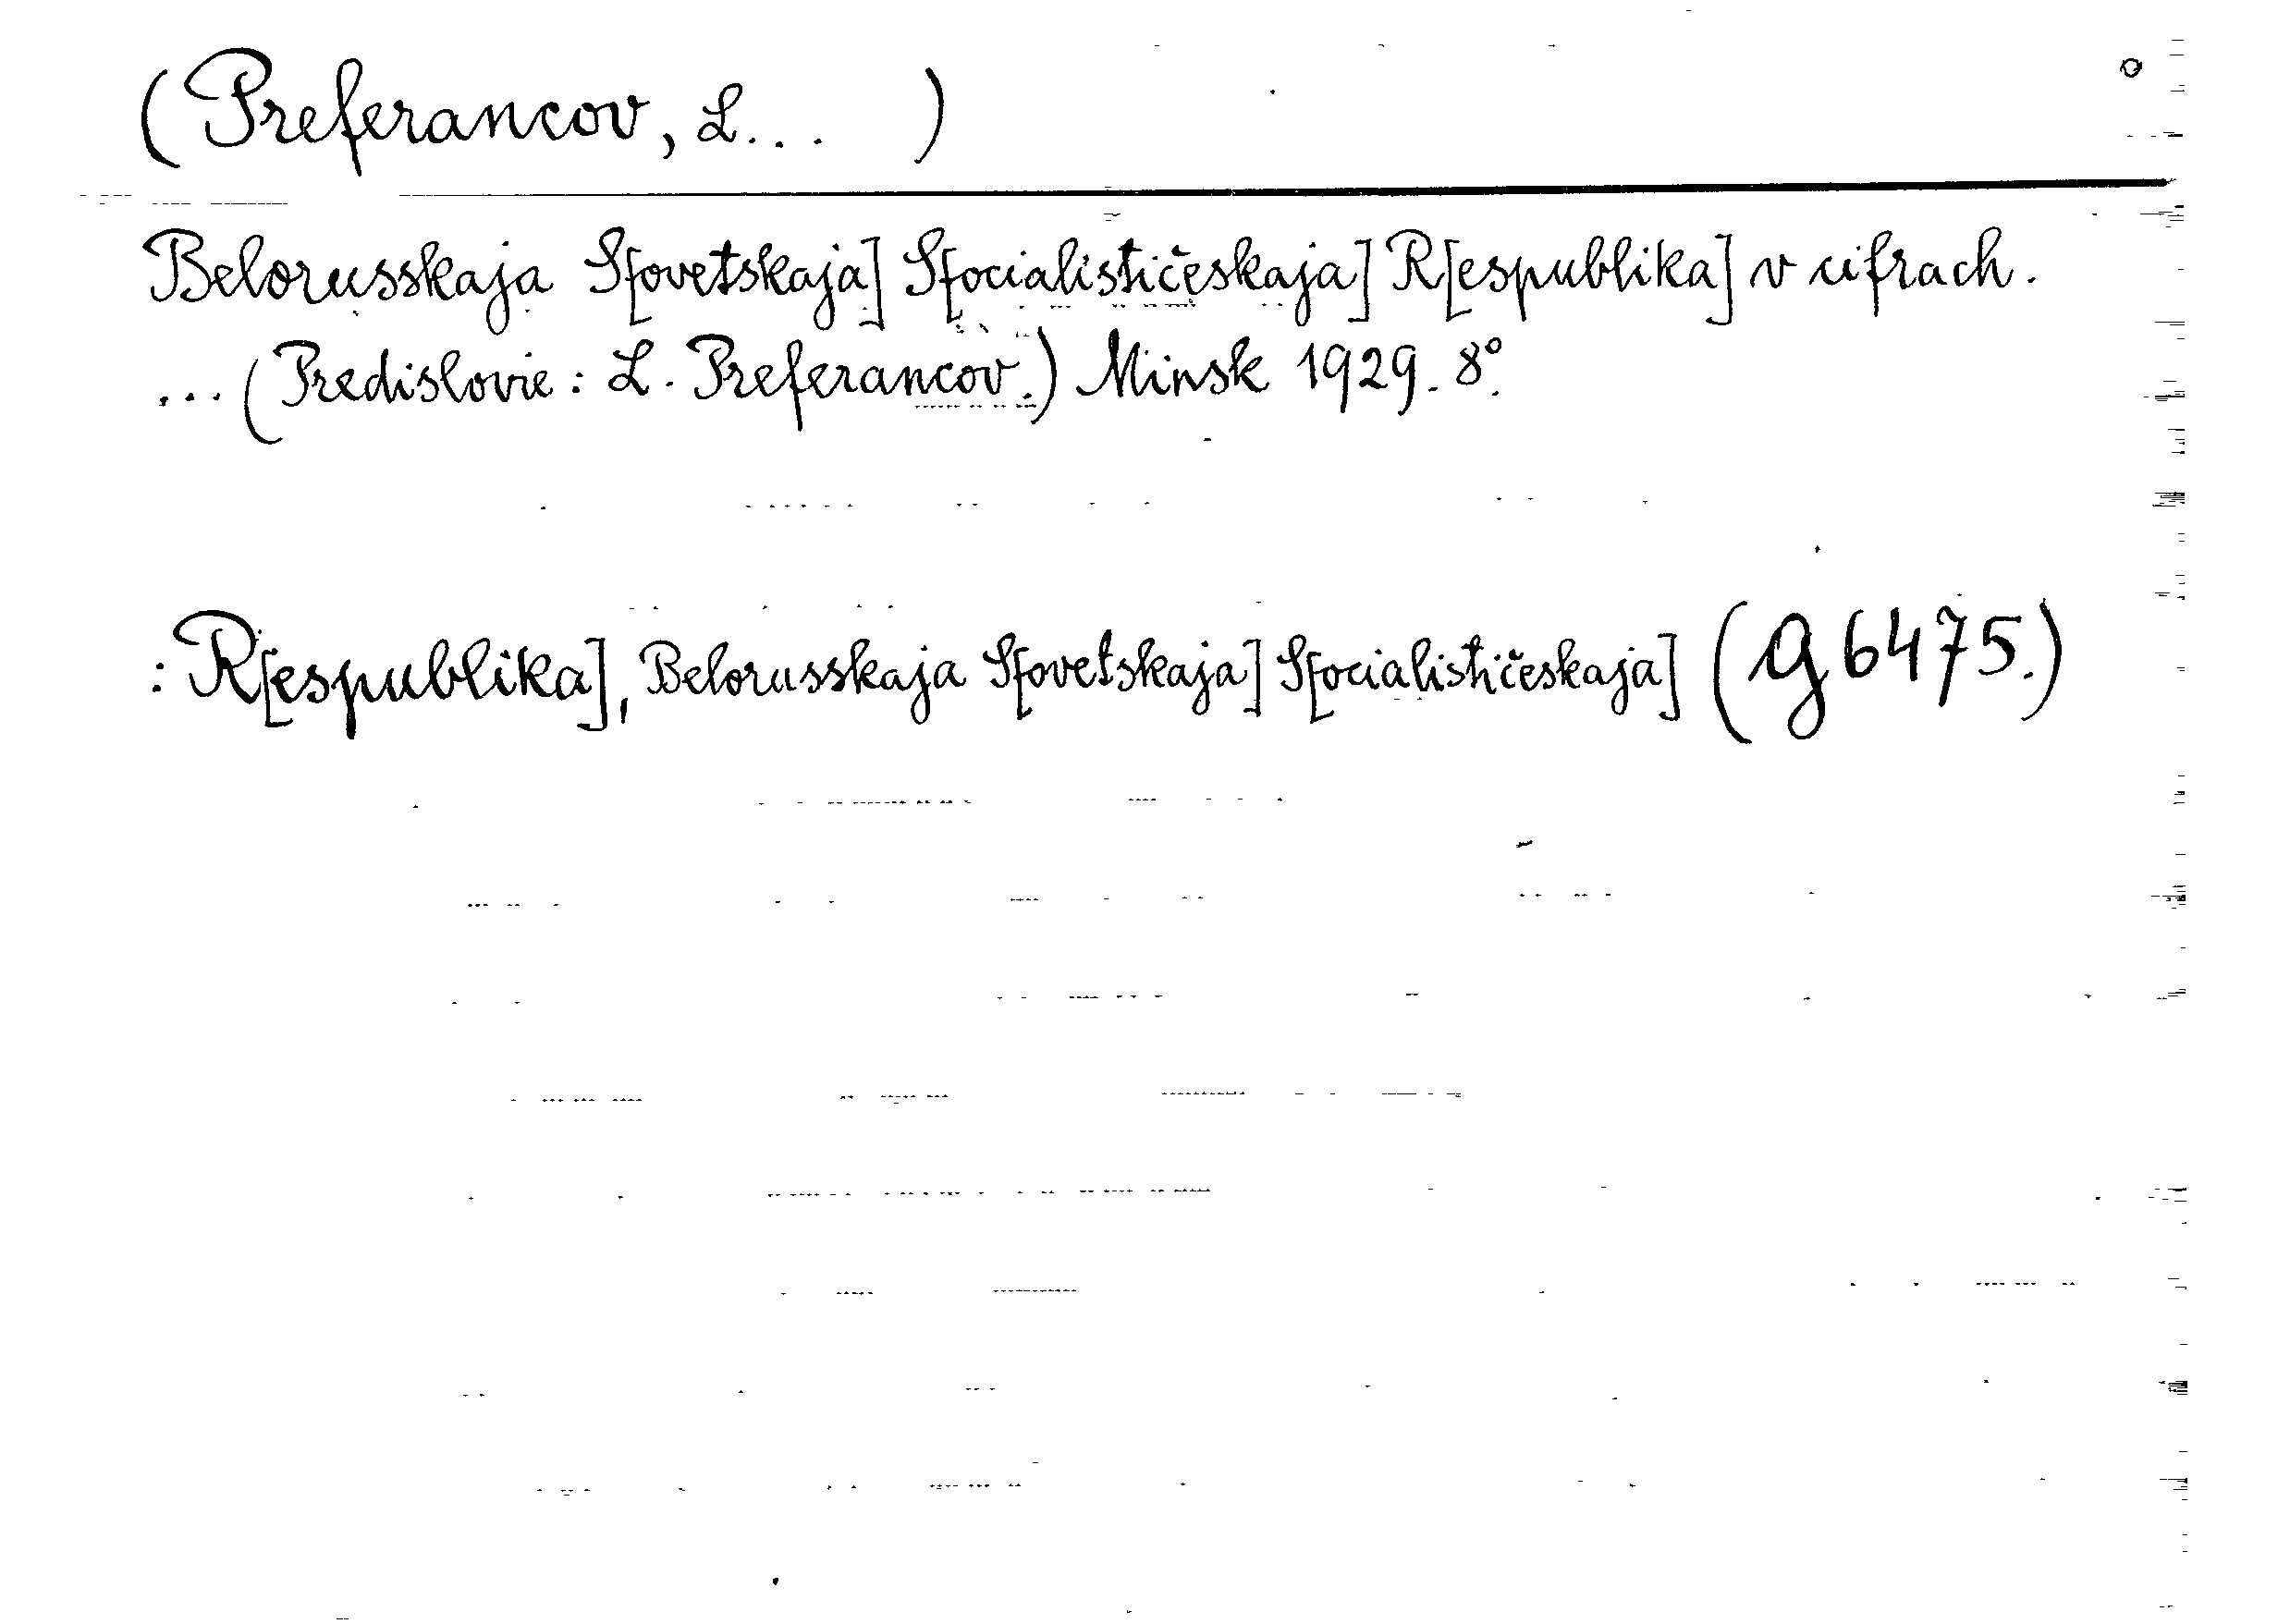 (Preferancov, L... )
Belorusskaja S[ovetskaja] S[ocialističeskaja] R[espublika] v cifrach.
... (Predislovie: L. Preferancov.) Minsk 1929. 8°.
: R[espublika], Belorusskaja S[ovetskaja] S[ocialističeskaja] (G 6475.)